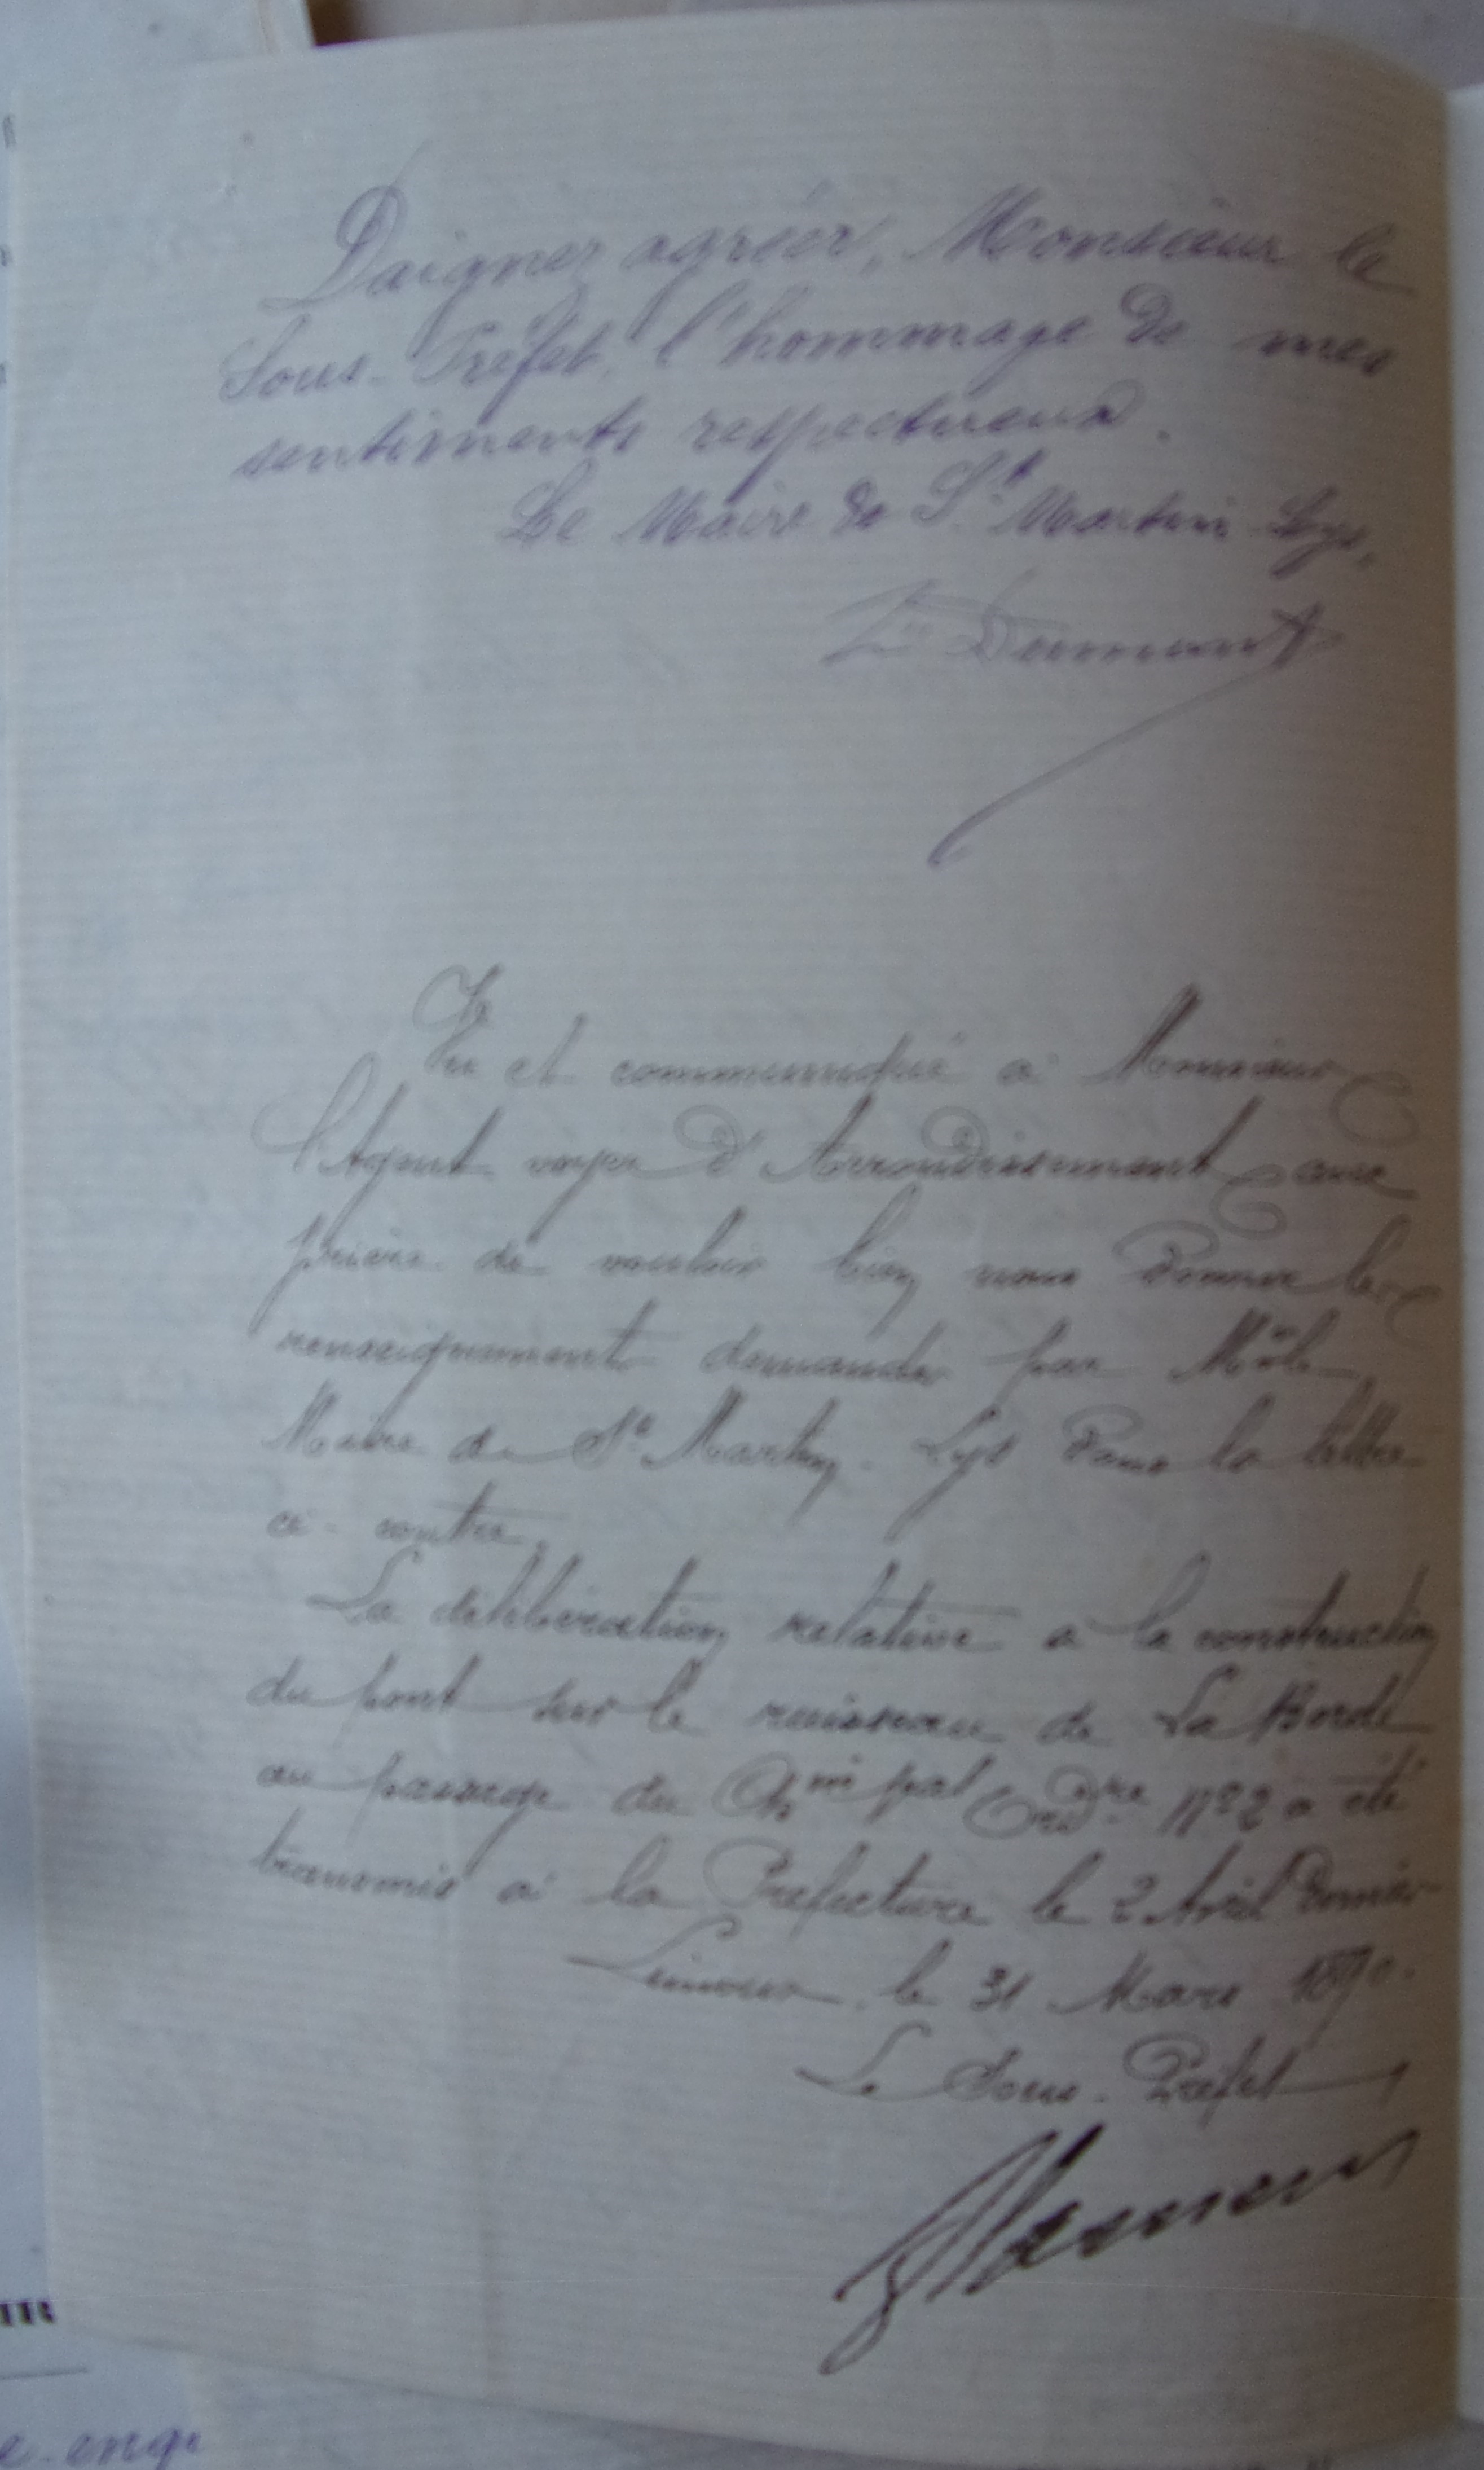 Daignez agréer, Monsieur le
Sous-Préfet, l'hommage de mes
sentiments respectueux.
Le Maire de St Martin-Lys,
Dumont
Vu et communiqué à Monsieur
l'Agent voyer d'Arrondissement avec
prière de vouloir bien nous donner les
renseignements demandés par Mr le
Maire de St Martin-Lys dans la lettre
ci-contre.
La délibération relative à la construction
du pont sur le ruisseau de La Borde
au passage du Ordre n° 2 a été
transmis à la Préfecture le 2 Avril dernier
Limoux, le 31 Mars 1890.
Le Sous-Préfet
e-enqu